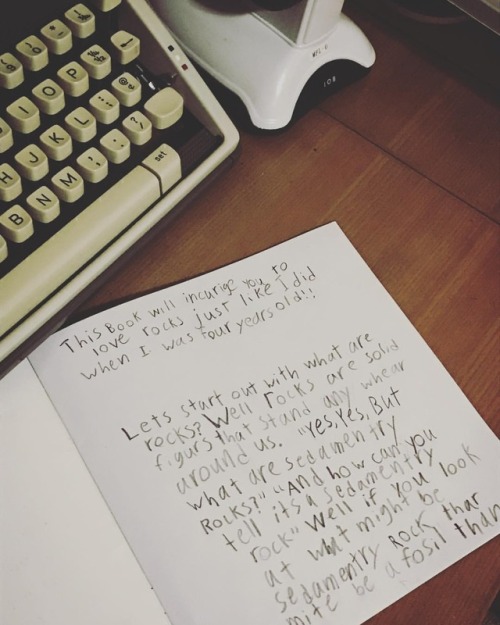 This Book will incurige you to
love rocks just like I did
when I was four years old!!
Lets start out with what are
rocks? Well rocks are solid
figurs that stand any whear
around us. "Yes, Yes, But
what are sedamentry
Rocks?" "And how can you
tell its a sedamentry
rock" Well if you look
at what might be
sedamentry Rock thar
mite be a fosil than
I O P
H J K L
B N M
set